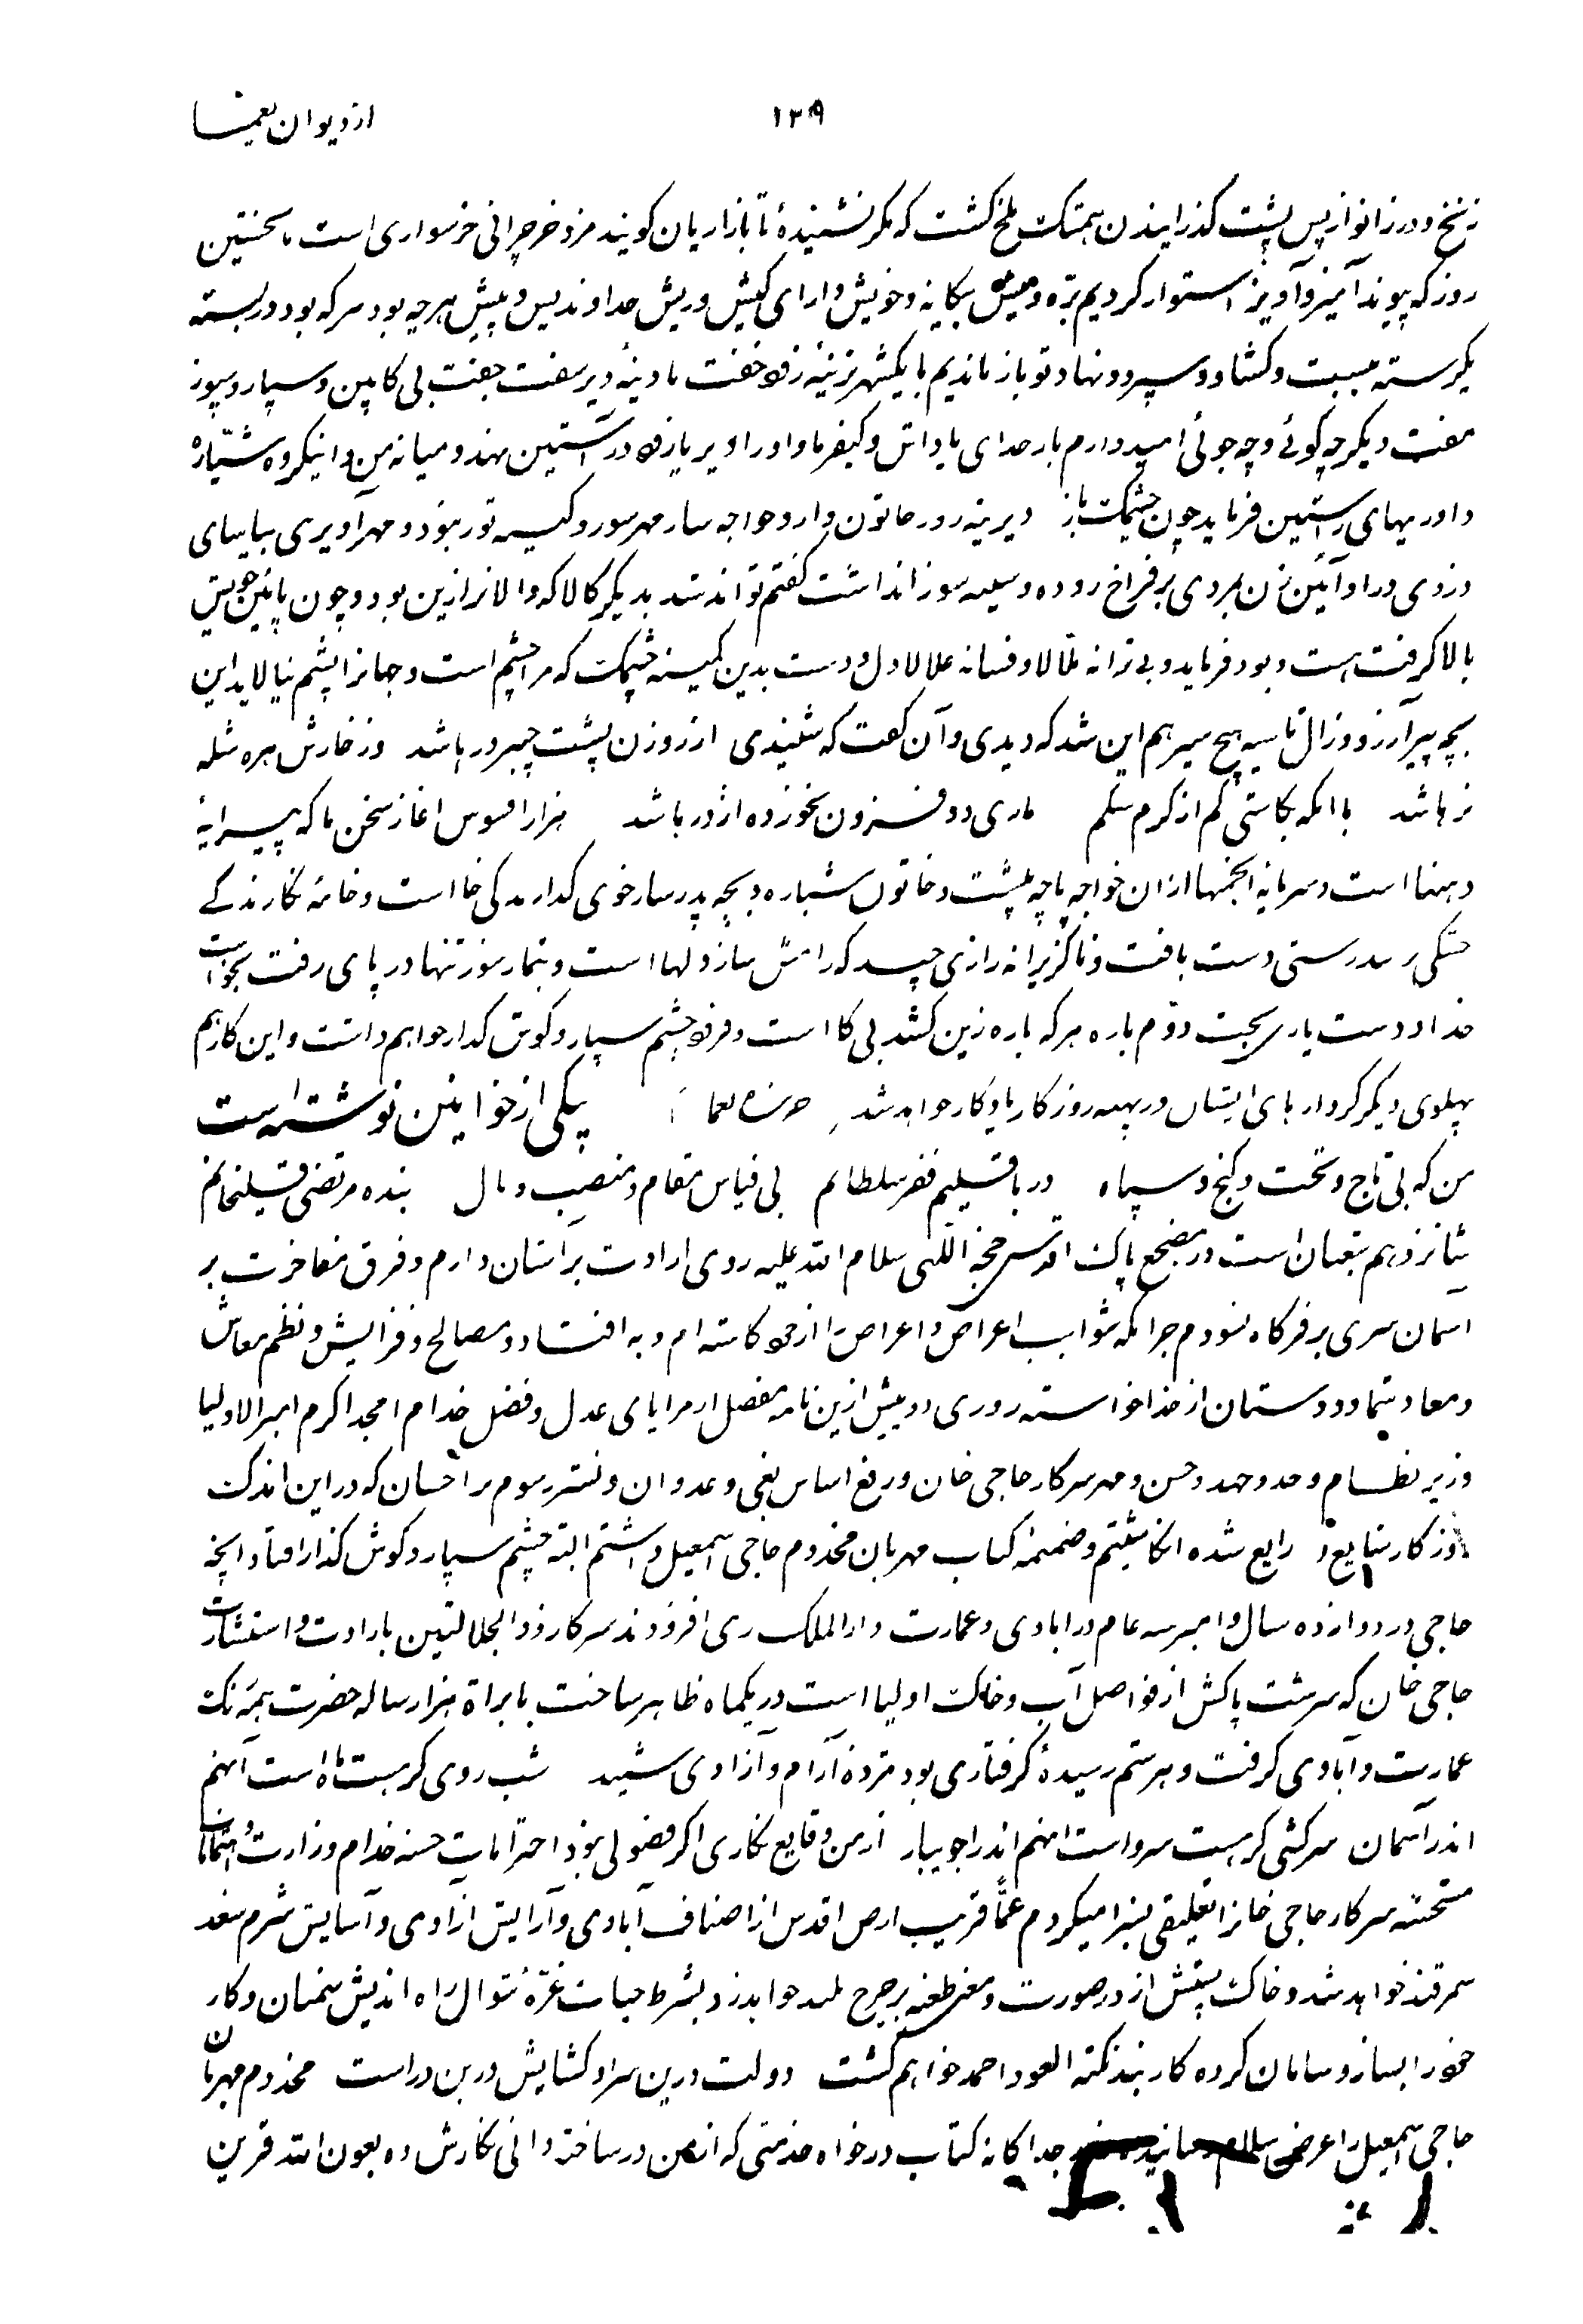 از دیوان یغما
۱۳۹
زنخ و در زانو از پس پشت گذرانیدن همتک بلخ گشت که مگر نشنیدهٔ تا بازاریان گویند مزد خر چرانی خر سواری است نخستین
روز که پیوند آمیز و آویز استوار کردیم برّه و میش بیگانه و خویش دارای کیش و ریش خداوند پس و پیش هر چه بود هر که بود در بسته
یکرسته ببست و گشاد و سپرد و نهاد تو باز ماندیم با یکشهر نرینه ژرف خفت مادینهٔ دیر سفت جفت بی کابین و سپار و سپوز
مفت دیگر چه گوئی و چه جوئی امیدوارم بار خدای پاداش و کیفر ما و او را دیر یا زود در آستین نهد و میانه من و اینگروه شیّاد
داوریهای راستین فرماید چون چشمک باز دیرینه روز خاتون دار و خواجه سار مهر سور و کیسه تور بود و مهر آویزی بپاسای
دزدی در او آئین زن بمردی بر فراخ روده وسیله سوز انداشت گفتم تواند شد بدیگر کالا که والاتر ازین بود و چون پائین خویش
بالا گرفت است و بود فرماید و بی ترانه تلالا و فسانه علالا دل و دست بدین کمینه چشمک که مرا چشم است و جهانرا پشم نیالاید این
بچه پیر آرزو و زال ناسیه هیچ سیر هم این شد که دیدی و آن گفت که شنیدی از روزن پشت چیره ور باشد وز خارش بهره شله
نر باشد با آنکه بکاستی کم از کرم شکم ماری دو فزون نخورده اژدر باشد هزار افسوس آغاز سخن ما که پیرایهٔ
دهنها است و سرمایه انجمنها از آن خواجه پاچه پلشت و خاتون شباره و بچه پدر سار خوی گدا رندکی خا است و خامه نگارندگی
خشکی بر تندرستی دست یافت و ناگزیرانه رازی چند که رامش ساز دلها است و تیمار سوز تنها در پای رفت بخواست
خدا و دست یاری بخت دوم باره هر که باره زین کشد بی کا است و فرود چشم سپار و گوش گذار خواهم داشت و این کار هم
پهلوی دیگر کردارهای ایشان در پهنه روزگار یادگار خواهد شد حرره یغما یکی از خوانین نوشته است
من که بی تاج و تخت و گنج و سپاه در باقلیم فقر سلطانم بی قیاس مقام و منصب و مال بنده مرتضی قلیخانم
شانزدهم شعبان است در مضجع پاک اقدس حجة اللهی سلام الله علیه روی ارادت بر آستان دارم و فرق مفاخرت بر
آسمان سری بر فرگاه نسودم جز آنکه شوایب اعراض و اغراض را از خود کاسته ام و به افتاد و مصالح و فزایش و نظم معاش
و معاد شما و دوستان از خدا خواسته روزی دو پیش ازین نامه مفصل از مزایای عدل و فضل خدام امجد اکرم امیر الاولیا
وزیر نظام و جد و جهد و حسن و مهر سرکار حاجی خان و رفع اساس بغی و عدوان و نشر رسوم بر و احسان که در این اندک
روزگار شایع و رایع شده انگاشتم و ضمیمه کتاب مهربان مخدوم حاجی اسمعیل داشتم البته چشم سپار و گوش گذار افتاد آنچه
حاجی در دوازده سال و امیر سه عام در آبادی و عمارت دار الملک ری افزودند سرکار ذو الجلالتین بارادت و استشارت
حاجی خان که سرشت پاکش از فواصل آب و خاک اولیا است در یکماه ظاهر ساخت بایرة هزار ساله حضرت همه رنگ
عمارت و آبادی گرفت و هر ستم رسیدهٔ گرفتاری بود مژده آرام و آزادی شنید شب روی گر هست ماه است آنهم
اندر آسمان سرکشی گر هست سرو است آنهم اندر جویبار از من وقایع نگاری اگر فضولی نبود احترامات حسنه خدام وزارت و اهتمامات
مستحسنه سرکار حاجی خانرا تعلیقی بسزا میکردم عمّا قریب ارض اقدس از اصناف آبادی و آرایش آزادی و آسایش شرم سغد
سمرقند خواهد شد و خاک پستش از در صورت و معنی طعنه بر چرخ بلند خواهد زد بشرط حیات غرّه شوال راه اندیش سمنان و کار
خود را بساز و سامان کرده کار بند نکته العود احمد خواهم گشت دولت درین سرا و گشایش درین در است مخدوم مهربان
حاجی اسمعیل را عرض سلام جداگانه کتاب در خواه خدمتی که از من در ساخته دانی نگارش ده بعون الله قرین